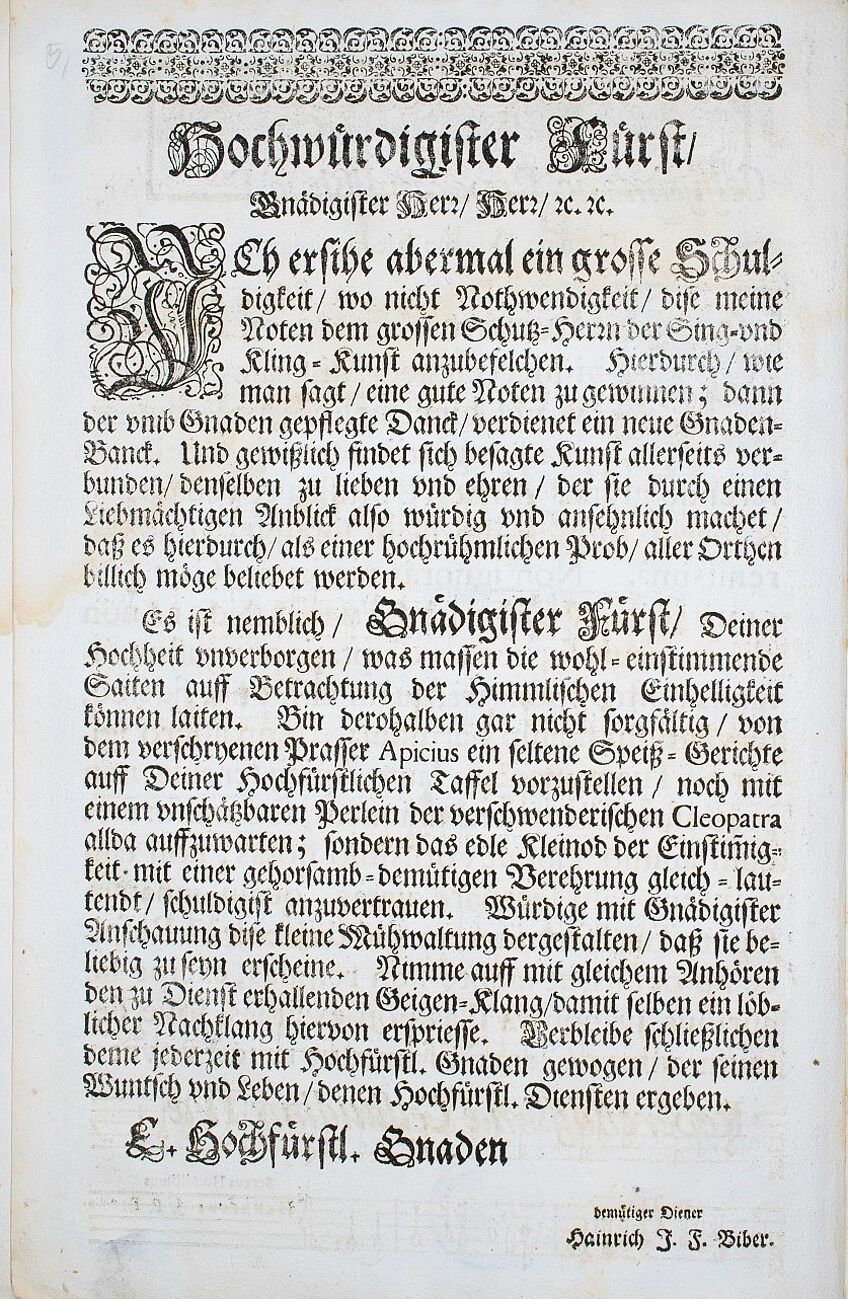 Hochwürdigister Fürst/
Gnädigister Herr/ Herr/ ꝛc. ꝛc.
ICh ersihe abermal ein grosse Schul-
digkeit/ wo nicht Nothwendigkeit/ dise meine
Noten dem grossen Schutz-Herrn der Sing-vnd
Kling-Kunst anzubefelchen. Hierdurch/ wie
man sagt/ eine gute Noten zu gewinnen; dann
der vmb Gnaden gepflegte Danck/ verdienet ein neue Gnaden-
Banck. Und gewißlich findet sich besagte Kunst allerseits ver-
bunden/ denselben zu lieben vnd ehren/ der sie durch einen
Liebmächtigen Anblick also würdig vnd ansehnlich machet/
daß es hierdurch/ als einer hochrühmlichen Prob/ aller Orthen
billich möge beliebet werden.
Es ist nemblich/ Gnädigister Fürst/ Deiner
Hochheit vnverborgen/ was massen die wohl-einstimmende
Saiten auff Betrachtung der Himmlischen Einhelligkeit
können laiten. Bin derohalben gar nicht sorgfältig/ von
dem verschryenen Prasser Apicius ein seltene Speiß-Gerichte
auff Deiner Hochfürstlichen Taffel vorzustellen/ noch mit
einem vnschätzbaren Perlein der verschwenderischen Cleopatra
allda auffzuwarten; sondern das edle Kleinod der Einstim̄ig-
keit mit einer gehorsamb-demütigen Verehrung gleich-lau-
tendt/ schuldigist anzuvertrauen. Würdige mit Gnädigister
Anschauung dise kleine Mühwaltung dergestalten/ daß sie be-
liebig zu seyn erscheine. Nimme auff mit gleichem Anhören
den zu Dienst erhallenden Geigen-Klang/damit selben ein löb-
licher Nachklang hiervon erspriesse. Verbleibe schließlichen
deme jederzeit mit Hochfürstl. Gnaden gewogen/ der seinen
Wuntsch vnd Leben/ denen Hochfürstl. Diensten ergeben.
E. Hochfürstl. Gnaden
demütiger Diener
Hainrich J. F. Biber.